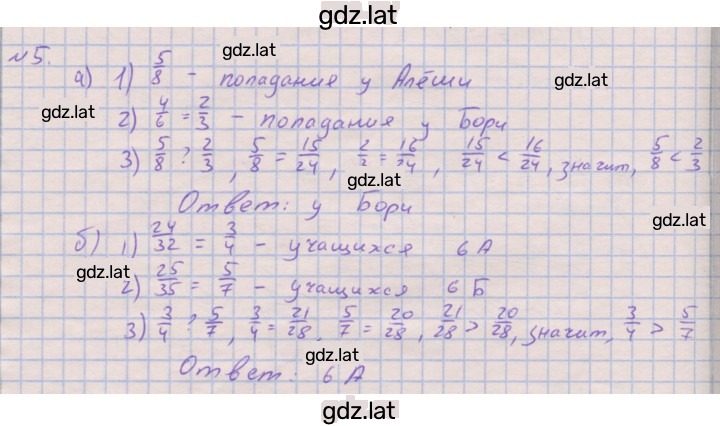 gdz.lat
№5.
gdz.lat
а) 1) 5/8 - попадания у Алёши
gdz.lat
gdz.lat
2) 4/6 = 2/3 - попадания у Бори
3) 5/8 ? 2/3, 5/8 = 15/24, 2/3 = 16/24, 15/24 < 16/24, значит, 5/8 < 2/3
gdz.lat
Ответ: у Бори
gdz.lat
б) 1) 24/32 = 3/4 - учащихся 6 А
gdz.lat
2) 25/35 = 5/7 - учащихся 6 Б
3) 3/4 ? 5/7, 3/4 = 21/28, 5/7 = 20/28, 21/28 > 20/28, значит, 3/4 > 5/7
gdz.lat
Ответ: 6 А
gdz.lat